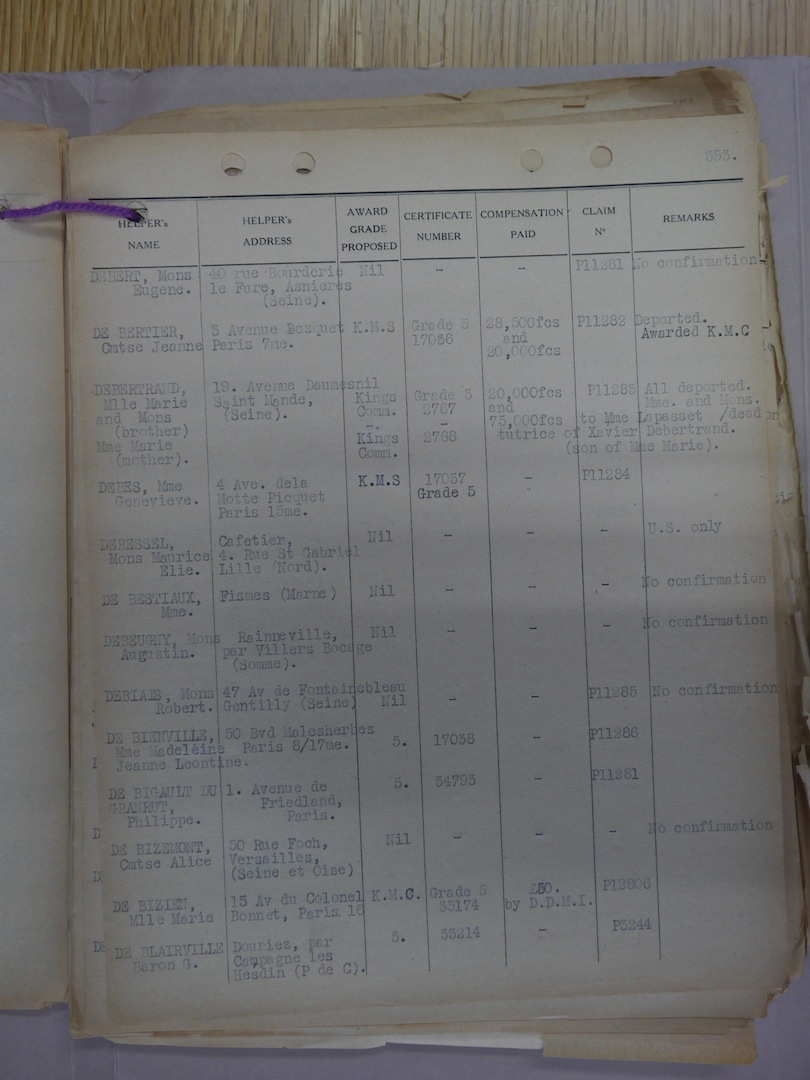 353.
HELPER's NAME HELPER's ADDRESS AWARD GRADE PROPOSED CERTIFICATE NUMBER COMPENSATION PAID CLAIM Nº REMARKS
DEBERT, Mons 40 rue Bourderie Nil - - P11281 No confirmation
Eugene. le Fure, Asnieres
(Seine).
DE BERTIER, 3 Avenue Bosquet K.M.S Grade 5 28,500fcs P11282 Deported.
Cmtse Jeanne Paris 7me. 17036 and Awarded K.M.C
20,000fcs
DEBERTRAND, 19. Avenue Daumesnil nil Grade 5 20,000fcs P11283 All deported.
Mlle Marie Saint Mande, Kings 2767 and Mme. and Mons.
and Mons (Seine). Comm. - 75,000fcs to Mme Lapasset /dead
(brother) -. 2768 tutrice of Xavier Debertrand.
Mme Marie Kings (son of Mme Marie).
(mother). Comm.
DEBES, Mme 4 Ave. dela K.M.S 17037 - P11284
Genevieve. Motte Picquet Grade 5
Paris 15me.
DEBESSEL, Cafetier, Nil - - - U.S. only
Mons Maurice 4. Rue St Gabriel
Elie. Lille (Nord).
DE BESTIAUX, Fismes (Marne) Nil - - - No confirmation
Mme.
DEBEUGNY, Mons Rainneville, Nil - - - No confirmation
Augustin. par Villers Bocage
(Somme).
DEBIAIS, Mons 47 Av de Fontainebleau - - P11285 No confirmation
Robert. Gentilly (Seine) Nil
DE BIENVILLE, 50 Bvd Malesherbes 5. 17038 - P11286
Mme Madelèine Paris 8/17me.
Jeanne Leontine.
DE BIGAULT DU 1. Avenue de 5. 34793 - P11281
GRANRUT, Friedland,
Philippe. Paris.
DE BIZEMONT, 30 Rue Foch, Nil - - - No confirmation
Cmtse Alice Versailles,
(Seine et Oise)
DE BIZIEN, 15 Av du Colonel K.M.C. Grade 5 £50. P12806
Mlle Marie Bonnet, Paris 16 35174 by D.D.M.I.
DE BLAIRVILLE Douriez, par 5. 33214 - P3244
Baron G. Campagne les
Hesdin (P de C).